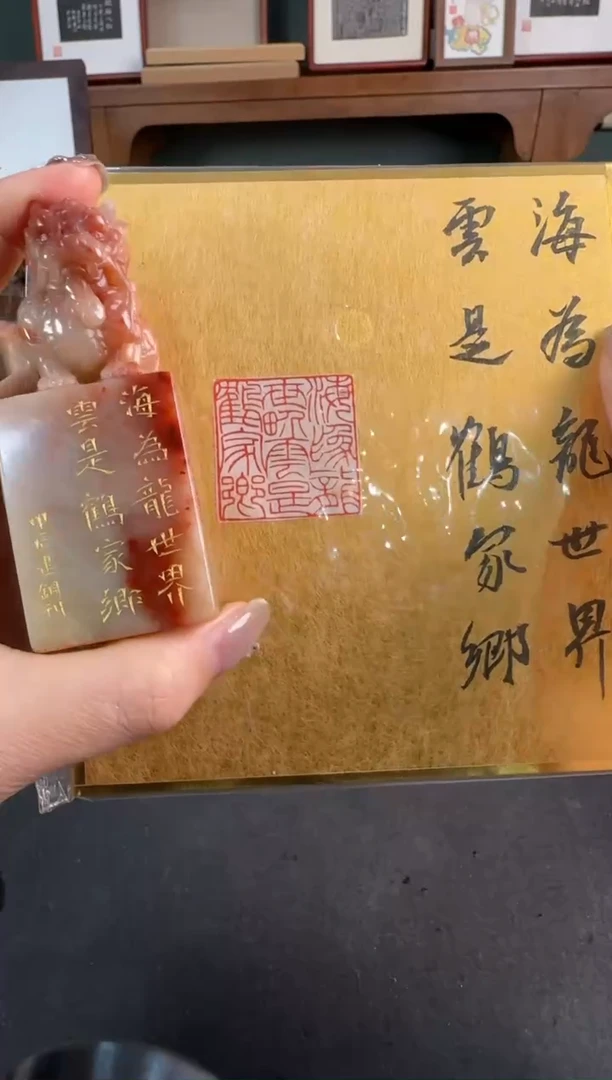 海為龍世界
雲是鶴家鄉
海為龍世界
雲是鶴家鄉
海為龍世界雲是鶴家鄉